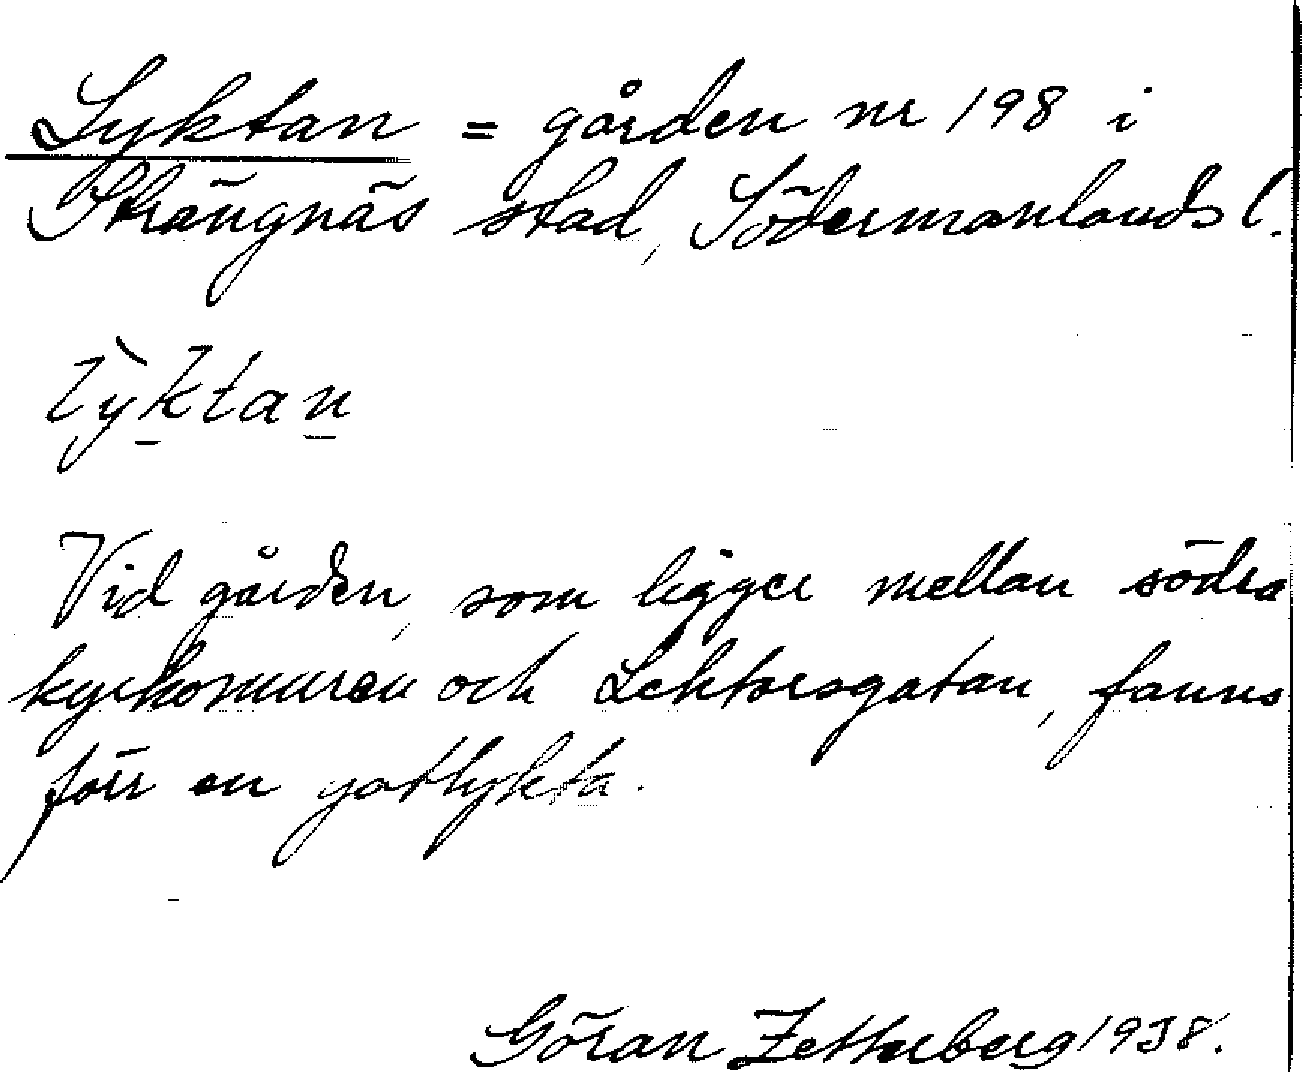 Lyktan = gården nr 198 i
Strängnäs stad, Södermanlands l.
lỳktan
Vid gården, som ligger mellan södra
kyrkomuren och Lektorsgatan, fanns
förr en gatlykta.
Göran Zetterberg 1938.